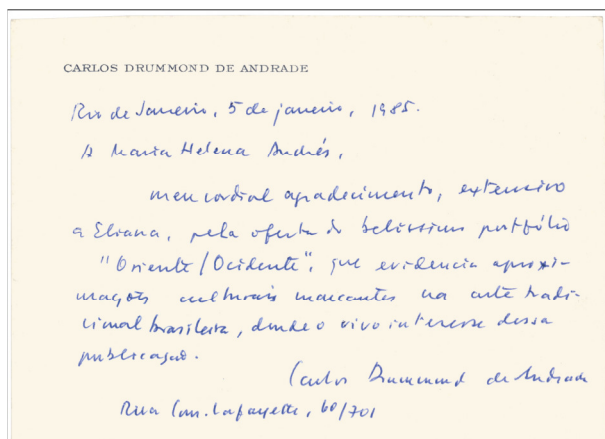 CARLOS DRUMMOND DE ANDRADE
Rio de Janeiro, 5 de janeiro, 1985.
A Maria Helena Andrés,
meu cordial agradecimento, extensivo
a Eliana, pela oferta do belíssimo portfólio
"Oriente/Ocidente", que evidencia aproxi-
mações culturais marcantes na arte tradi-
cional brasileira, donde o vivo interesse dessa
publicação.
Carlos Drummond de Andrade
Rua Con. Lafayette, 60/701